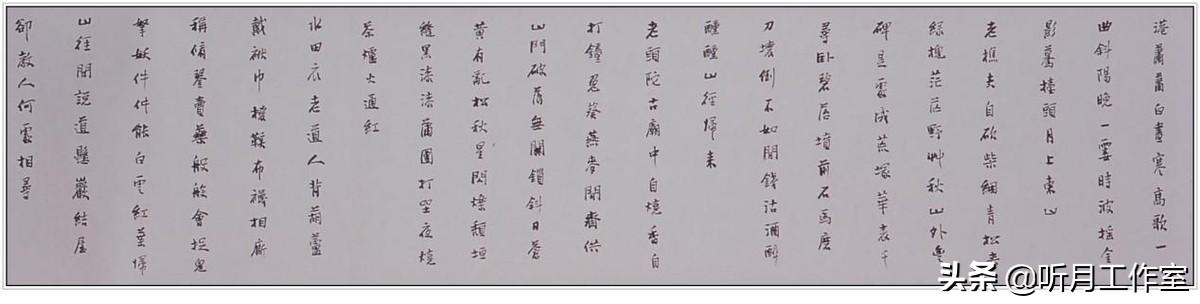 港蕭蕭白晝寒高歌一
曲斜陽晚一霎時波搖金
影驀擡頭月上東山
老樵夫自砍柴綑青松夾
綠槐茫茫野艸秋山外豐
碑是處成荒塚華表千
尋臥碧苔墳前石馬磨
刀壞倒不如閒錢沽酒醉
醺醺山徑歸來
老頭陀古廟中自燒香自
打鐘兔葵燕麥閒齋供
山門破落無關鎖斜日蒼
黃有亂松秋星閃爍頹垣
縫黑漆漆蒲團打坐夜燒
茶爐火通紅
水田衣老道人背葫蘆
戴袱巾椶鞋布襪相廝
稱脩琴賣藥般般會捉鬼
拏妖件件能白雲紅葉歸
山徑聞說道懸巖結屋
卻教人何處相尋
头条 @听月工作室